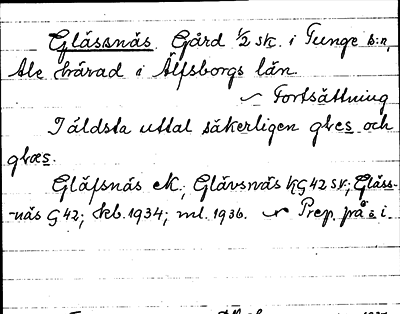 Glässnäs Gård ½ sk. i Tunge s:n,
Ale härad i Älfsborgs län.
~ Fortsättning
I äldsta uttal säkerligen gles och
glæs.
Gläfsnäs eK; Glävsnäs kG 42 sk; Gläss-
-näs G 42; kb. 1934; ml. 1936. ~ Prep. på s. i.